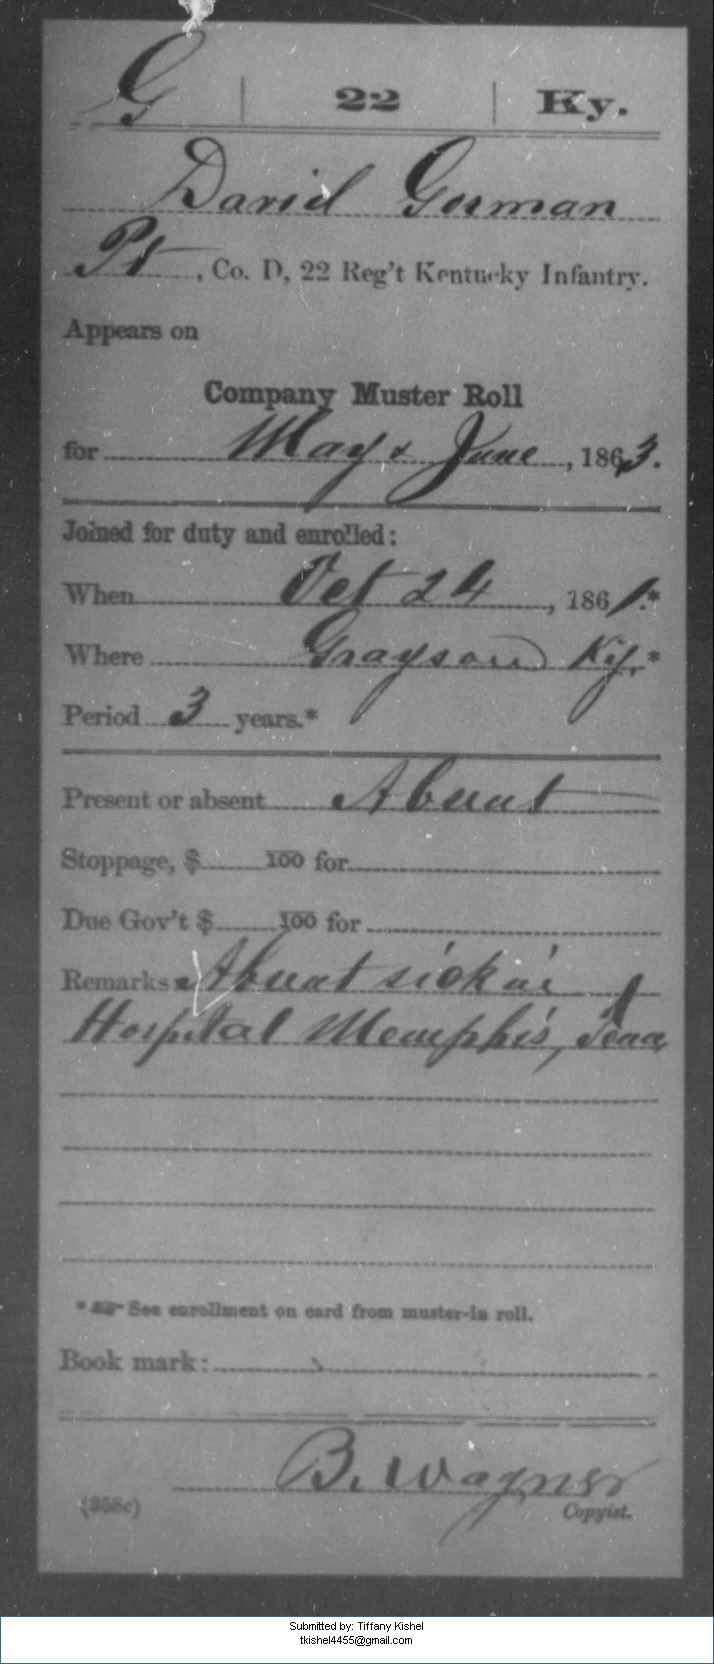 G | 22 | Ky.
David Gorman
Pt, Co. D, 22 Reg't Kentucky Infantry.
Appears on
Company Muster Roll
for May & June, 1863.
Joined for duty and enrolled:
When Oct 24, 1861.*
Where Grayson Ky.*
Period 3 years.*
Present or absent Absent
Stoppage, $ 100 for
Due Gov't $ 100 for
Remarks: Absent sick in
Hospital Memphis, Tenn
* See enrollment on card from muster-in roll.
Book mark:
B. Wagner
(358c) Copyist.
Submitted by: Tiffany Kishel
tkishel4455@gmail.com